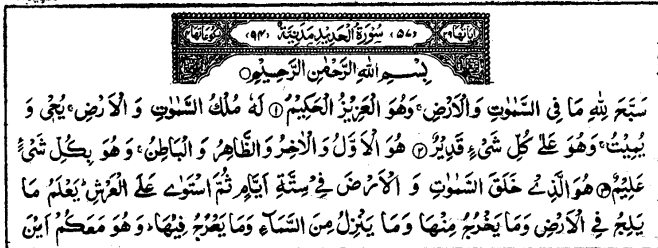 اٰیاتها ٢٩ (٥٧) سُوْرَةُ الْحَدِیْدِ مَدَنِیَّةٌ (٩٤) رکوعاتها ٤
بِسْمِ اللّٰهِ الرَّحْمٰنِ الرَّحِیْمِ ○
سَبَّحَ لِلّٰهِ مَا فِی السَّمٰوٰتِ وَالْاَرْضِ ۚ وَهُوَ الْعَزِیْزُ الْحَكِیْمُ ١ لَهٗ مُلْكُ السَّمٰوٰتِ وَ الْاَرْضِ ۚ یُحْیٖ وَ
یُمِیْتُ ۚ وَهُوَ عَلٰی كُلِّ شَیْءٍ قَدِیْرٌ ٢ هُوَ الْاَوَّلُ وَ الْاٰخِرُ وَ الظَّاهِرُ وَ الْبَاطِنُ ۚ وَ هُوَ بِكُلِّ شَیْءٍ
عَلِیْمٌ ٣ هُوَ الَّذِیْ خَلَقَ السَّمٰوٰتِ وَ الْاَرْضَ فِیْ سِتَّةِ اَیَّامٍ ثُمَّ اسْتَوٰی عَلَی الْعَرْشِ ؕ یَعْلَمُ مَا
یَلِجُ فِی الْاَرْضِ وَمَا یَخْرُجُ مِنْهَا وَمَا یَنْزِلُ مِنَ السَّمَآءِ وَمَا یَعْرُجُ فِیْهَا ؕ وَ هُوَ مَعَكُمْ اَیْنَ